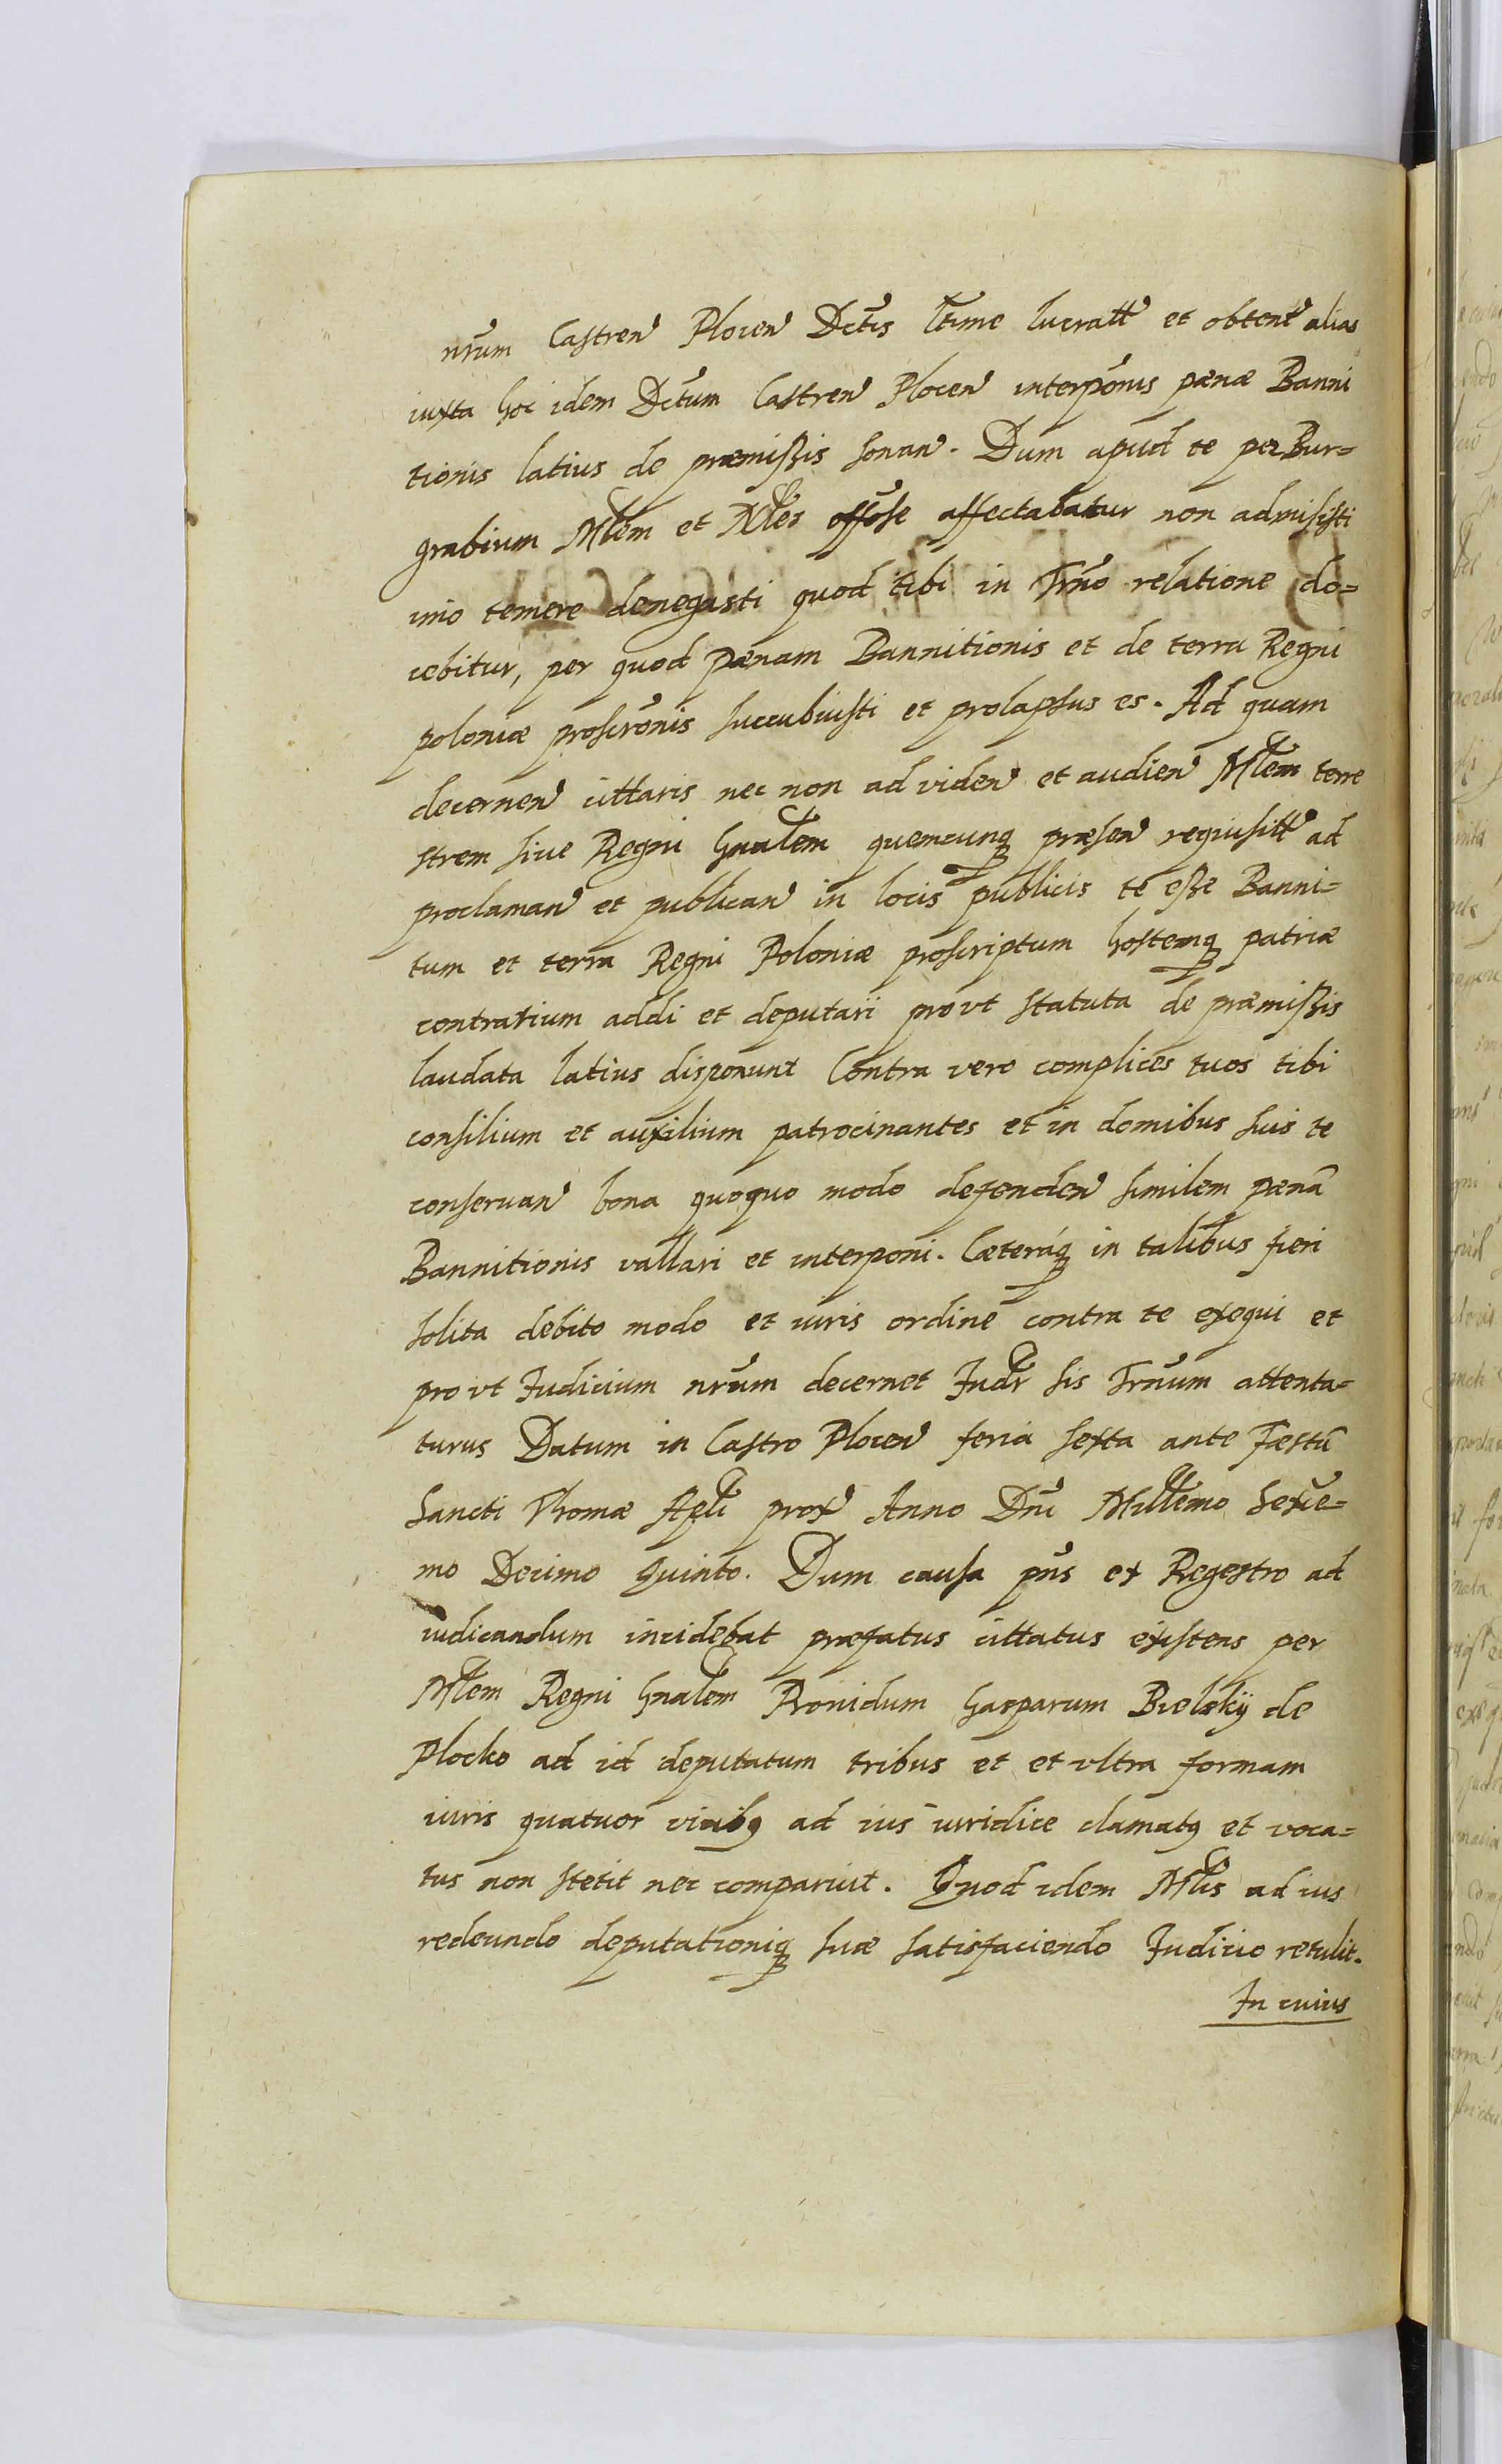 nrum Castren Plocen Dctis ltime lucratt et obtent alias
iuxta hoc idem Dctum Castren Plocen interponis pænæ Banni
tionis latius de præmißis sonan. Dum apud te per Bur=
grabium Mlem et Nles offose affectabatur non admisisti
imo temere denegasti quod tibi in Trno relatione do=
cebitur, per quod pænam Bannitionis et de terra Regni
poloniæ proscronis succubuisti et prolapsus es. Ad quam
decernen cittaris nec non ad viden et audien Mlem terre
strem siue Regni Gnalem quemcunq præsen requisitt ad
proclaman et publican in locis publicis te eße Banni=
tum et terra Regni Poloniæ proscriptum hostemq patriæ
contrarium addi et deputari pro vt statuta de præmißis
laudata latius disponunt Contra vero complices tuos tibi
consilium et auxilium patrocinantes et in domibus suis te
conseruan bona quoquo modo defenden similem pænã
Bannitionis vallari et interponi. Cæteráq in talibus fieri
solita debito modo et iuris ordine contra te exequi et
pro vt Judicium nrum decernet Judr sis Trnum attenta=
turus Datum in Castro Plocen feria sexta ante Fæstũ
Sancti Thomæ Apli prox Anno Dni Millemo Sexce=
mo Decimo Quinto. Dum causa pns ex Regestro ad
iudicandum incidebat præfatus cittatus existens per
Mlem Regni Gnalem Prouidum Gasparum Bielskÿ de
Plocko ad id deputatum tribus et et vltra formam
iuris quatuor vicibq ad ius iuridice clamatq et voca=
tus non stetit nec comparuit. Quod idem Mlis ad ius
redeundo deputationiq suæ satisfaciendo Judicio retulit.
In cuius